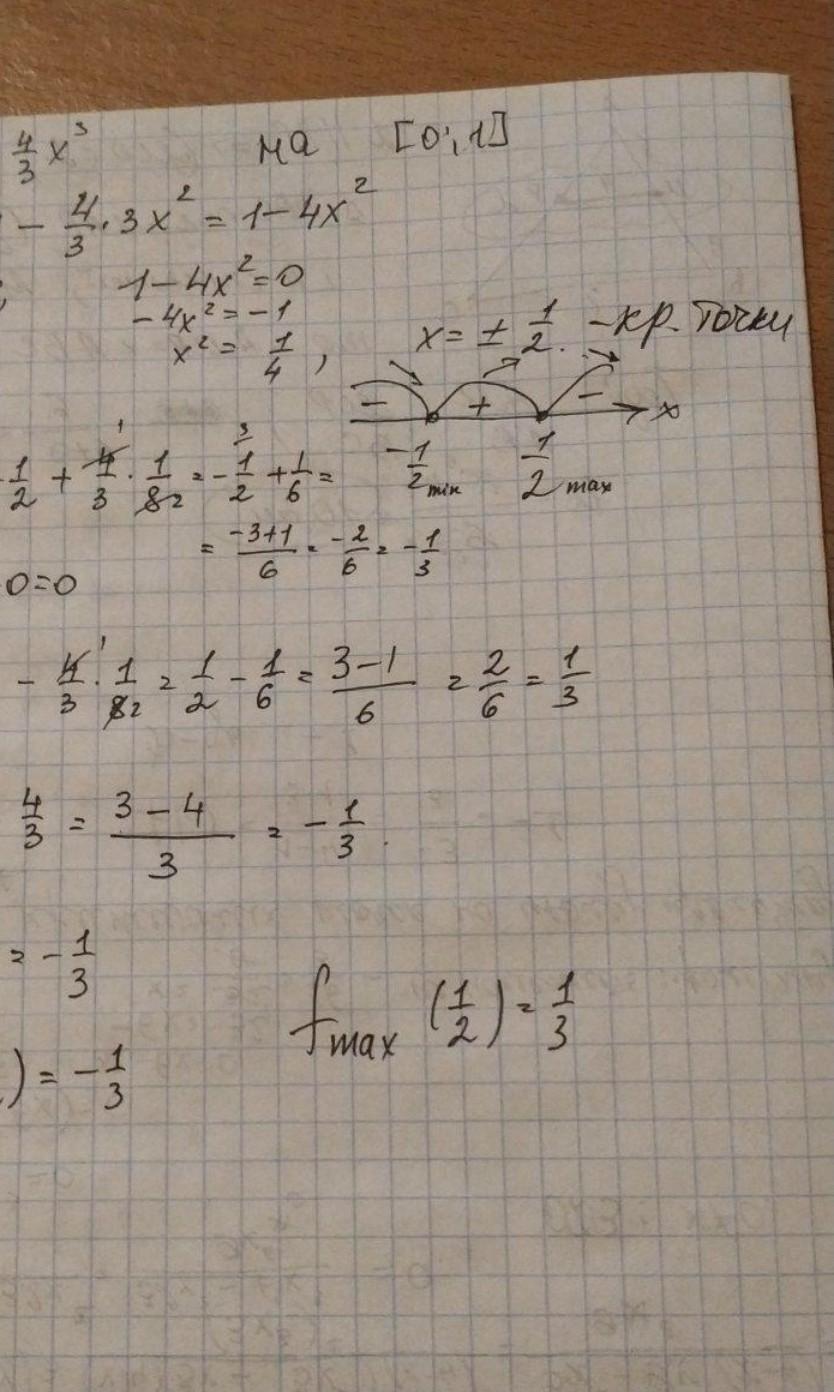 4/3 x³ на [0; 1]
- 4/3 · 3x² = 1 - 4x²
1 - 4x² = 0
- 4x² = -1
x² = 1/4, x = ± 1/2. - кр. точки
- + - x
-1/2 min 1/2 max
1/2 + 4/3 · 1/8 2 = - 1/2 + 1/6 =
= -3+1/6 = -2/6 = -1/3
0=0
- 4/3 · 1/8 2 = 1/2 - 1/6 = 3-1/6 = 2/6 = 1/3
4/3 = 3-4/3 = - 1/3.
= - 1/3
f max (1/2) = 1/3
) = - 1/3